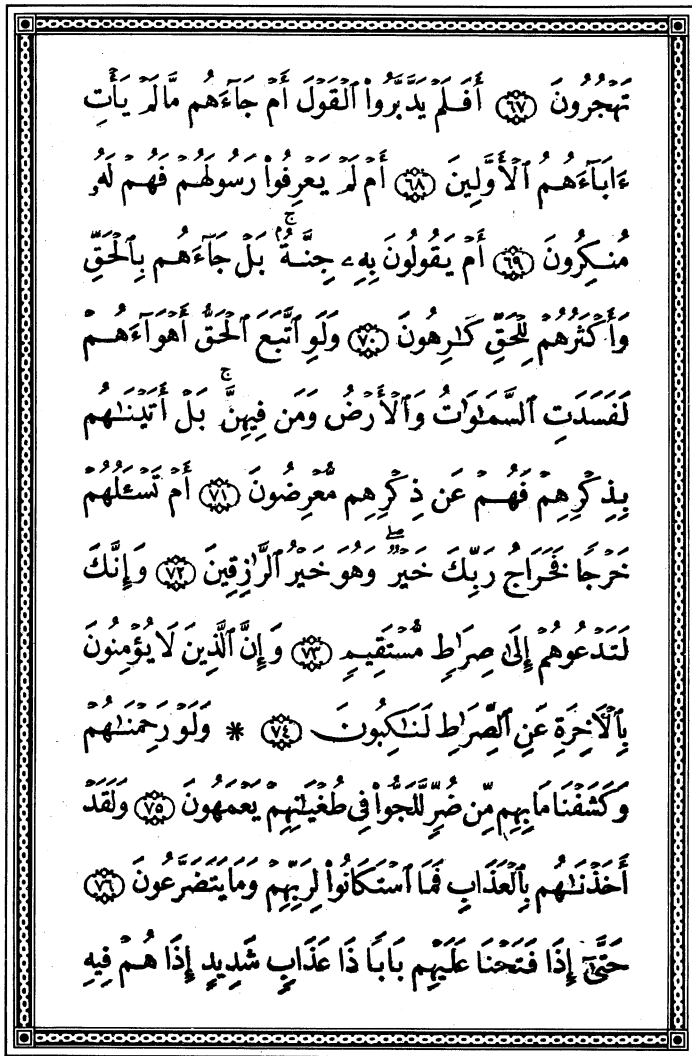 تَهْجُرُونَ ﴿٦٧﴾ أَفَلَمْ يَدَّبَّرُوا۟ ٱلْقَوْلَ أَمْ جَآءَهُم مَّا لَمْ يَأْتِ
ءَابَآءَهُمُ ٱلْأَوَّلِينَ ﴿٦٨﴾ أَمْ لَمْ يَعْرِفُوا۟ رَسُولَهُمْ فَهُمْ لَهُۥ
مُنكِرُونَ ﴿٦٩﴾ أَمْ يَقُولُونَ بِهِۦ جِنَّةٌۢ ۚ بَلْ جَآءَهُم بِٱلْحَقِّ
وَأَكْثَرُهُمْ لِلْحَقِّ كَـٰرِهُونَ ﴿٧٠﴾ وَلَوِ ٱتَّبَعَ ٱلْحَقُّ أَهْوَآءَهُمْ
لَفَسَدَتِ ٱلسَّمَـٰوَٰتُ وَٱلْأَرْضُ وَمَن فِيهِنَّ ۚ بَلْ أَتَيْنَـٰهُم
بِذِكْرِهِمْ فَهُمْ عَن ذِكْرِهِم مُّعْرِضُونَ ﴿٧١﴾ أَمْ تَسْـَٔلُهُمْ
خَرْجًا فَخَرَاجُ رَبِّكَ خَيْرٌ ۖ وَهُوَ خَيْرُ ٱلرَّٰزِقِينَ ﴿٧٢﴾ وَإِنَّكَ
لَتَدْعُوهُمْ إِلَىٰ صِرَٰطٍ مُّسْتَقِيمٍ ﴿٧٣﴾ وَإِنَّ ٱلَّذِينَ لَا يُؤْمِنُونَ
بِٱلْـَٔاخِرَةِ عَنِ ٱلصِّرَٰطِ لَنَـٰكِبُونَ ﴿٧٤﴾ * وَلَوْ رَحِمْنَـٰهُمْ
وَكَشَفْنَا مَا بِهِم مِّن ضُرٍّ لَّلَجُّوا۟ فِى طُغْيَـٰنِهِمْ يَعْمَهُونَ ﴿٧٥﴾ وَلَقَدْ
أَخَذْنَـٰهُم بِٱلْعَذَابِ فَمَا ٱسْتَكَانُوا۟ لِرَبِّهِمْ وَمَا يَتَضَرَّعُونَ ﴿٧٦﴾
حَتَّىٰٓ إِذَا فَتَحْنَا عَلَيْهِم بَابًا ذَا عَذَابٍ شَدِيدٍ إِذَا هُمْ فِيهِ